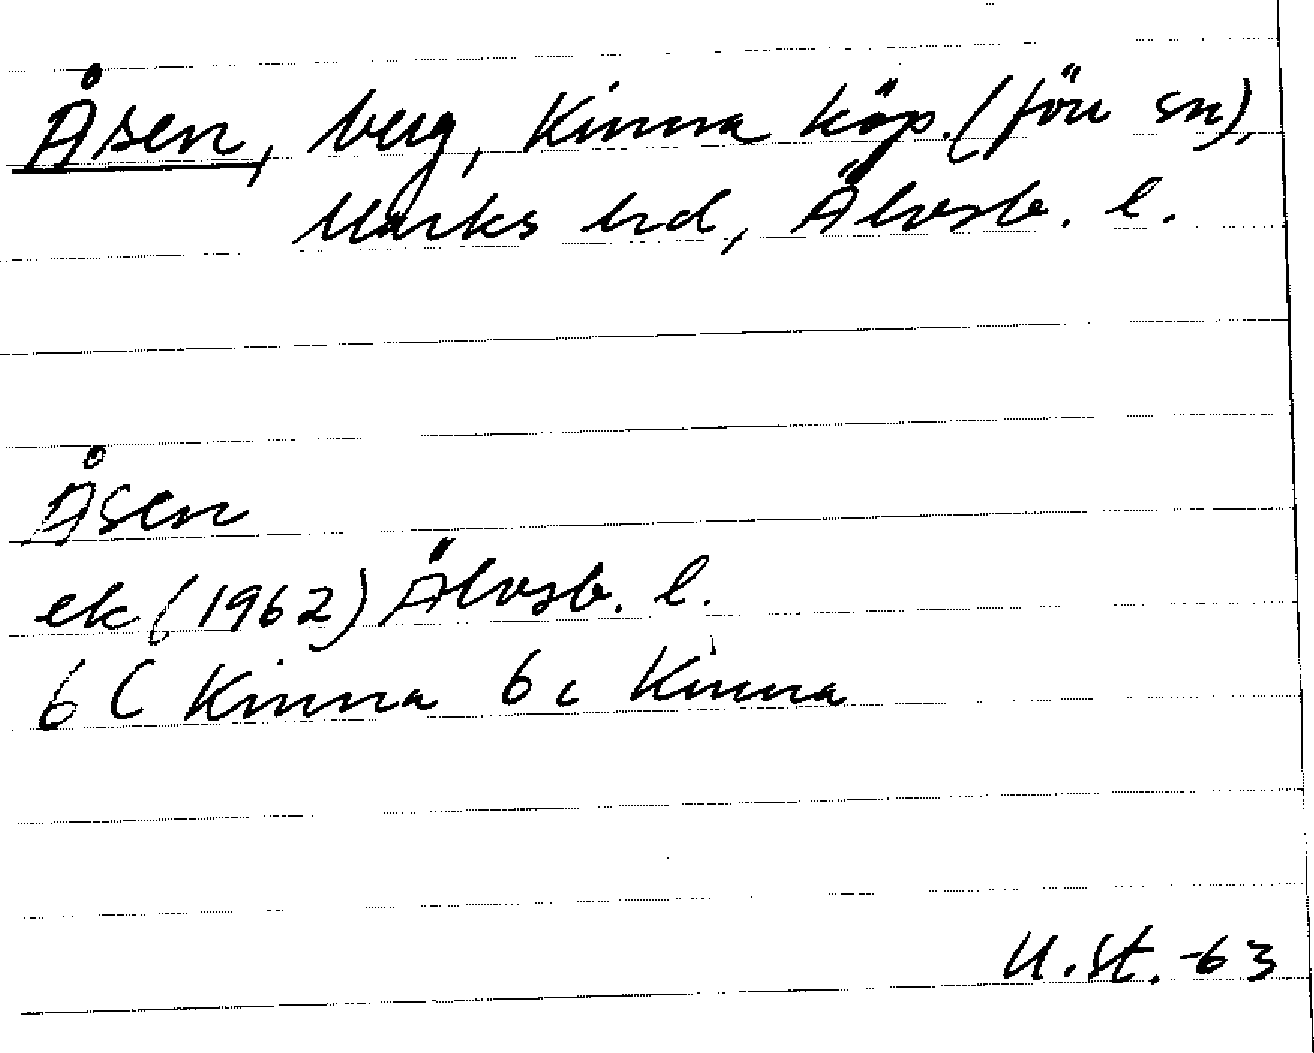 Åsen, berg, Kinna köp. (förr sn),
Marks hd, Älvsb. l.
Åsen
ek (1962) Älvsb. l.
6 C Kinna 6 c Kinna
U.St. -63